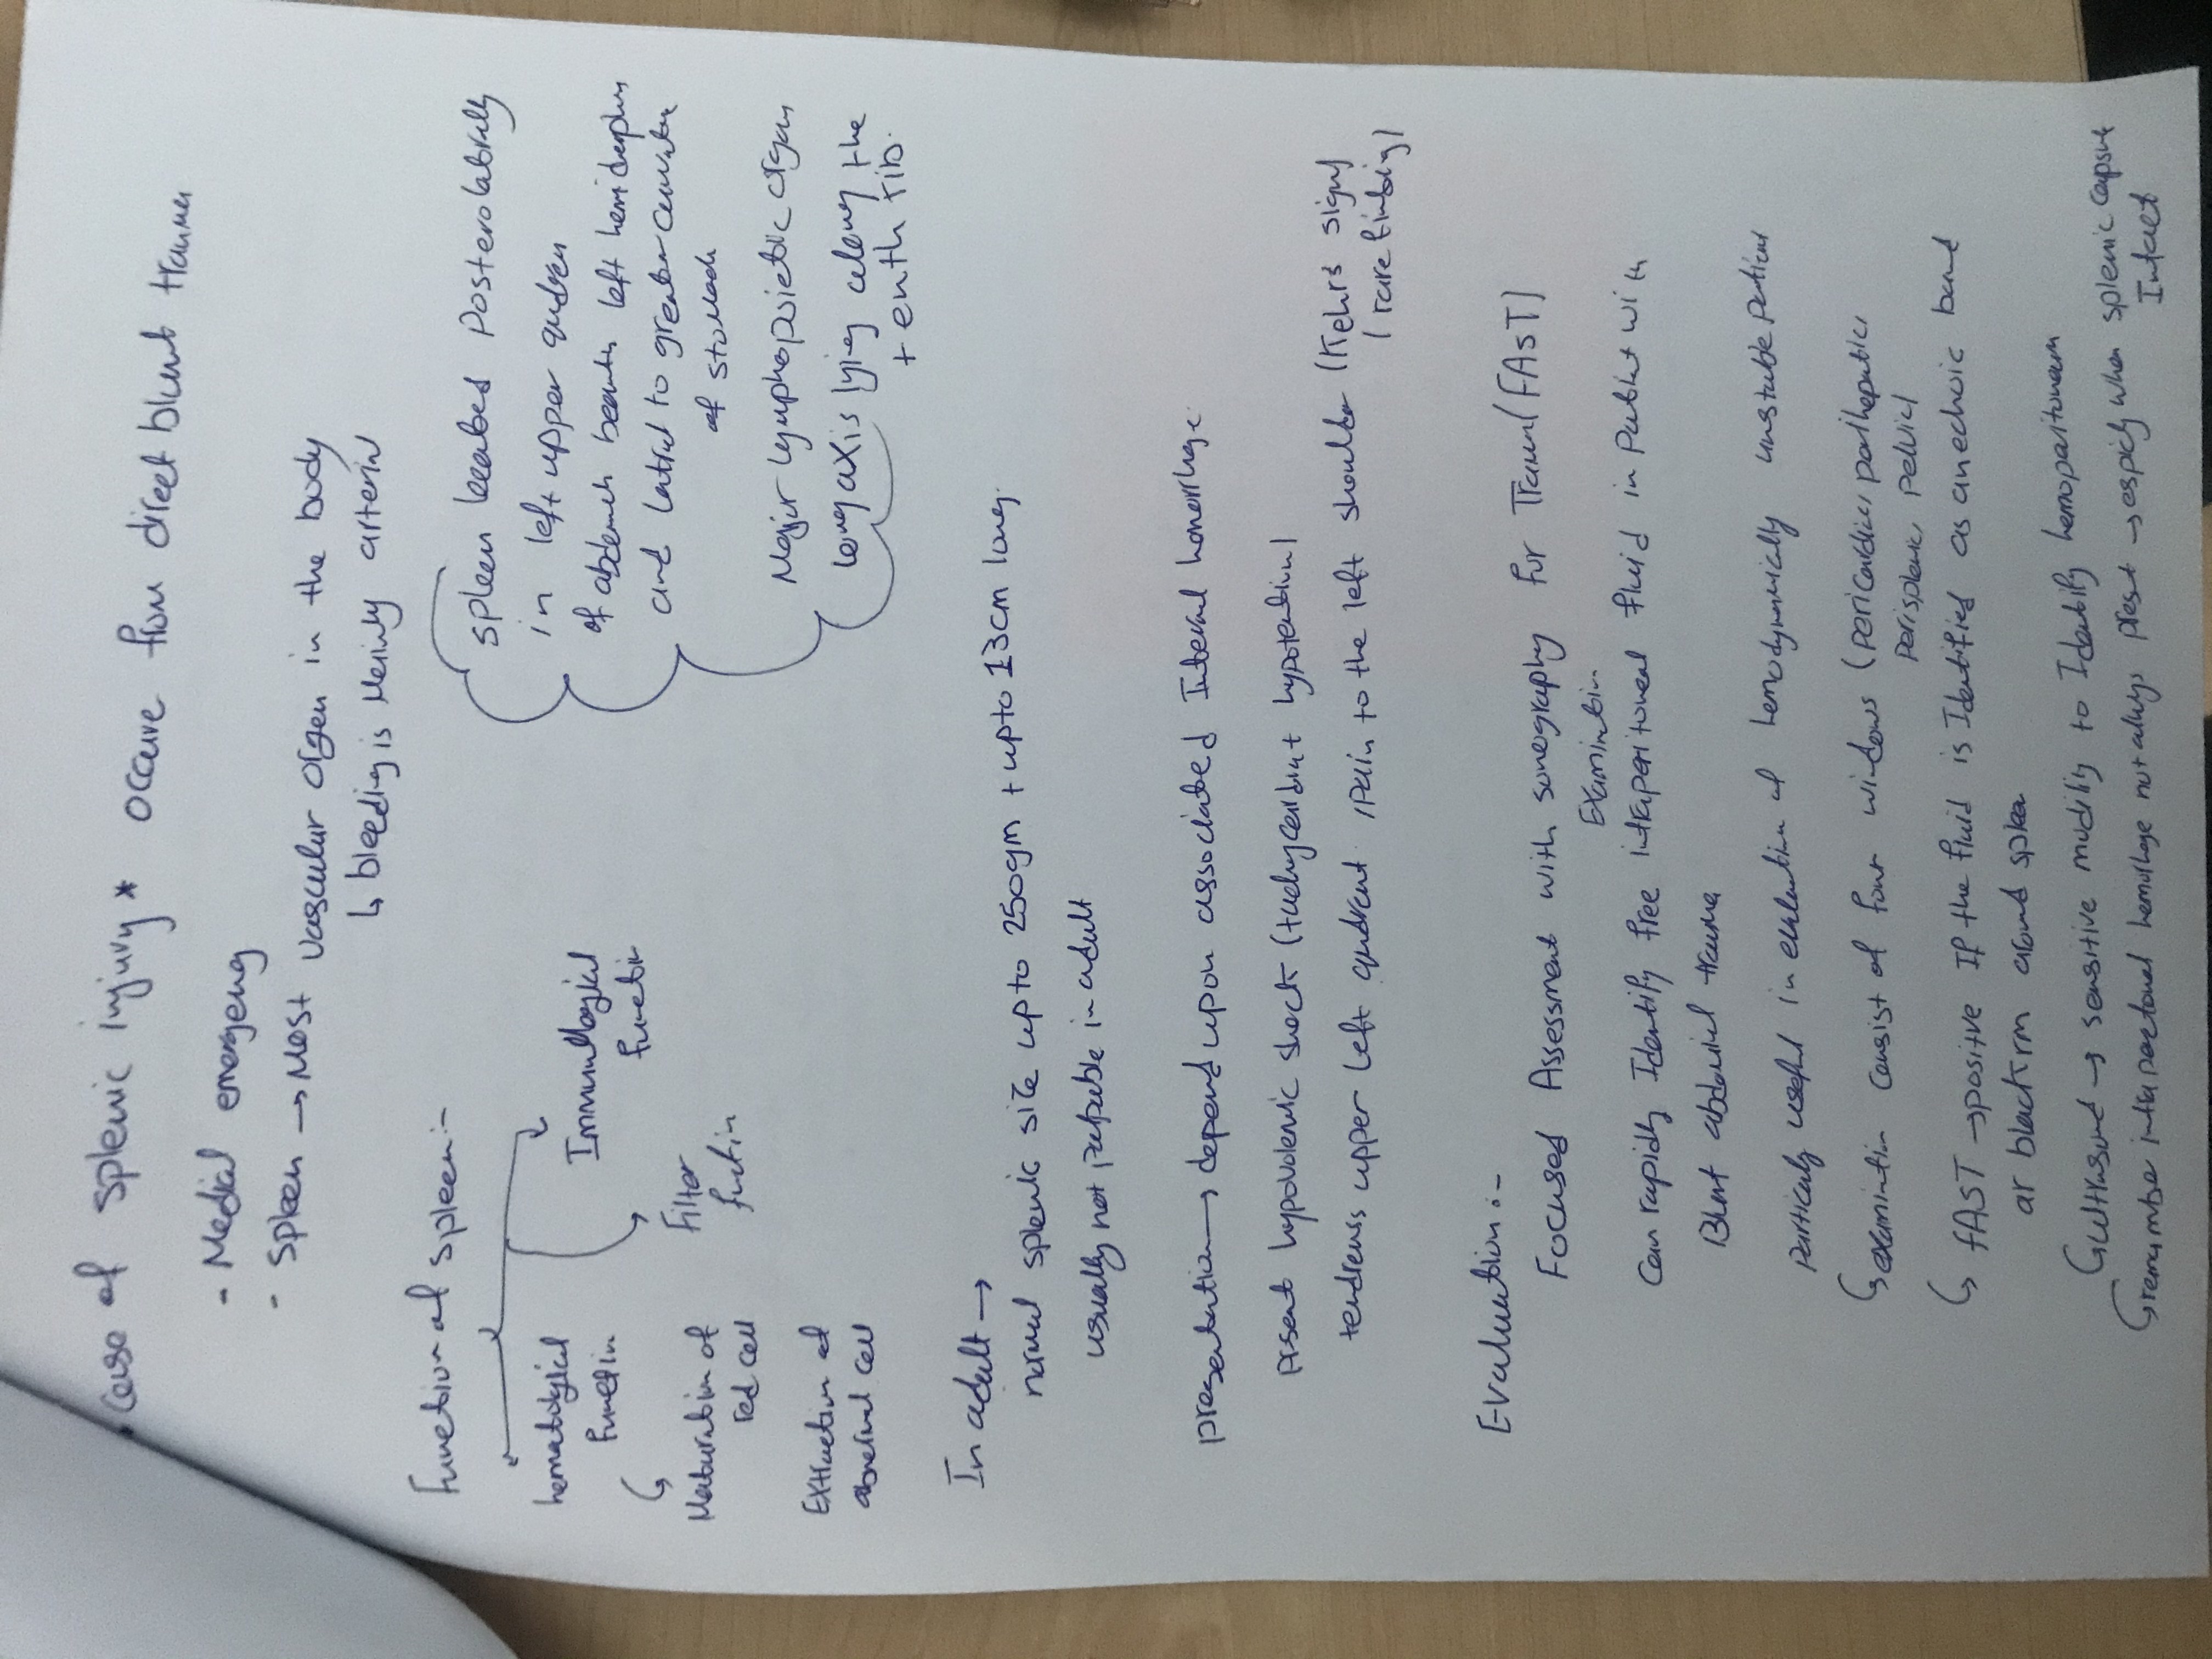 Case of splenic injury * occure from direct blunt trauma
- Medical emergency
- Spleen → Most vascular organ in the body
↳ bleeding is Mainly arterial
Function of spleen:-
hematological
function
Maturation of
red cell
Extraction of
abnormal cell
Filter
function
Immunological
function
Spleen located Posterolaterally
in left upper
of abdomen beneath left
and lateral to greater curvature
of stomach
Major lymphopoietic organ
long axis lying along the
tenth rib.
In adult →
normal splenic size up to 250gm + up to 13cm long.
usually not palpable in adult
presentation → depend upon associated Internal
present hypovolemic shock (tachycardia + hypotension)
tendrenss upper left quadrent, pain to the left shoulder (Kehrs sign)
(rare finding)
Evaluation :-
Focused Assessment with sonography for Trauma (FAST)
Examination
Can rapidly Identify free intraperitoneal fluid in patient with
Blunt abdominal trauma
particularly useful in evaluation of hemodynamically unstable patient
↳ examination consist of four windows (pericardial, perihepatic,
perisplenic, pelvic)
↳ FAST → positive If the fluid is Identified as anechoic band
or black rim around spleen
↳ ultrasound → sensitive modility to Identify hemoperitoneum
↳ remember hemorrhage not always present → especially when splenic capsule
Intact